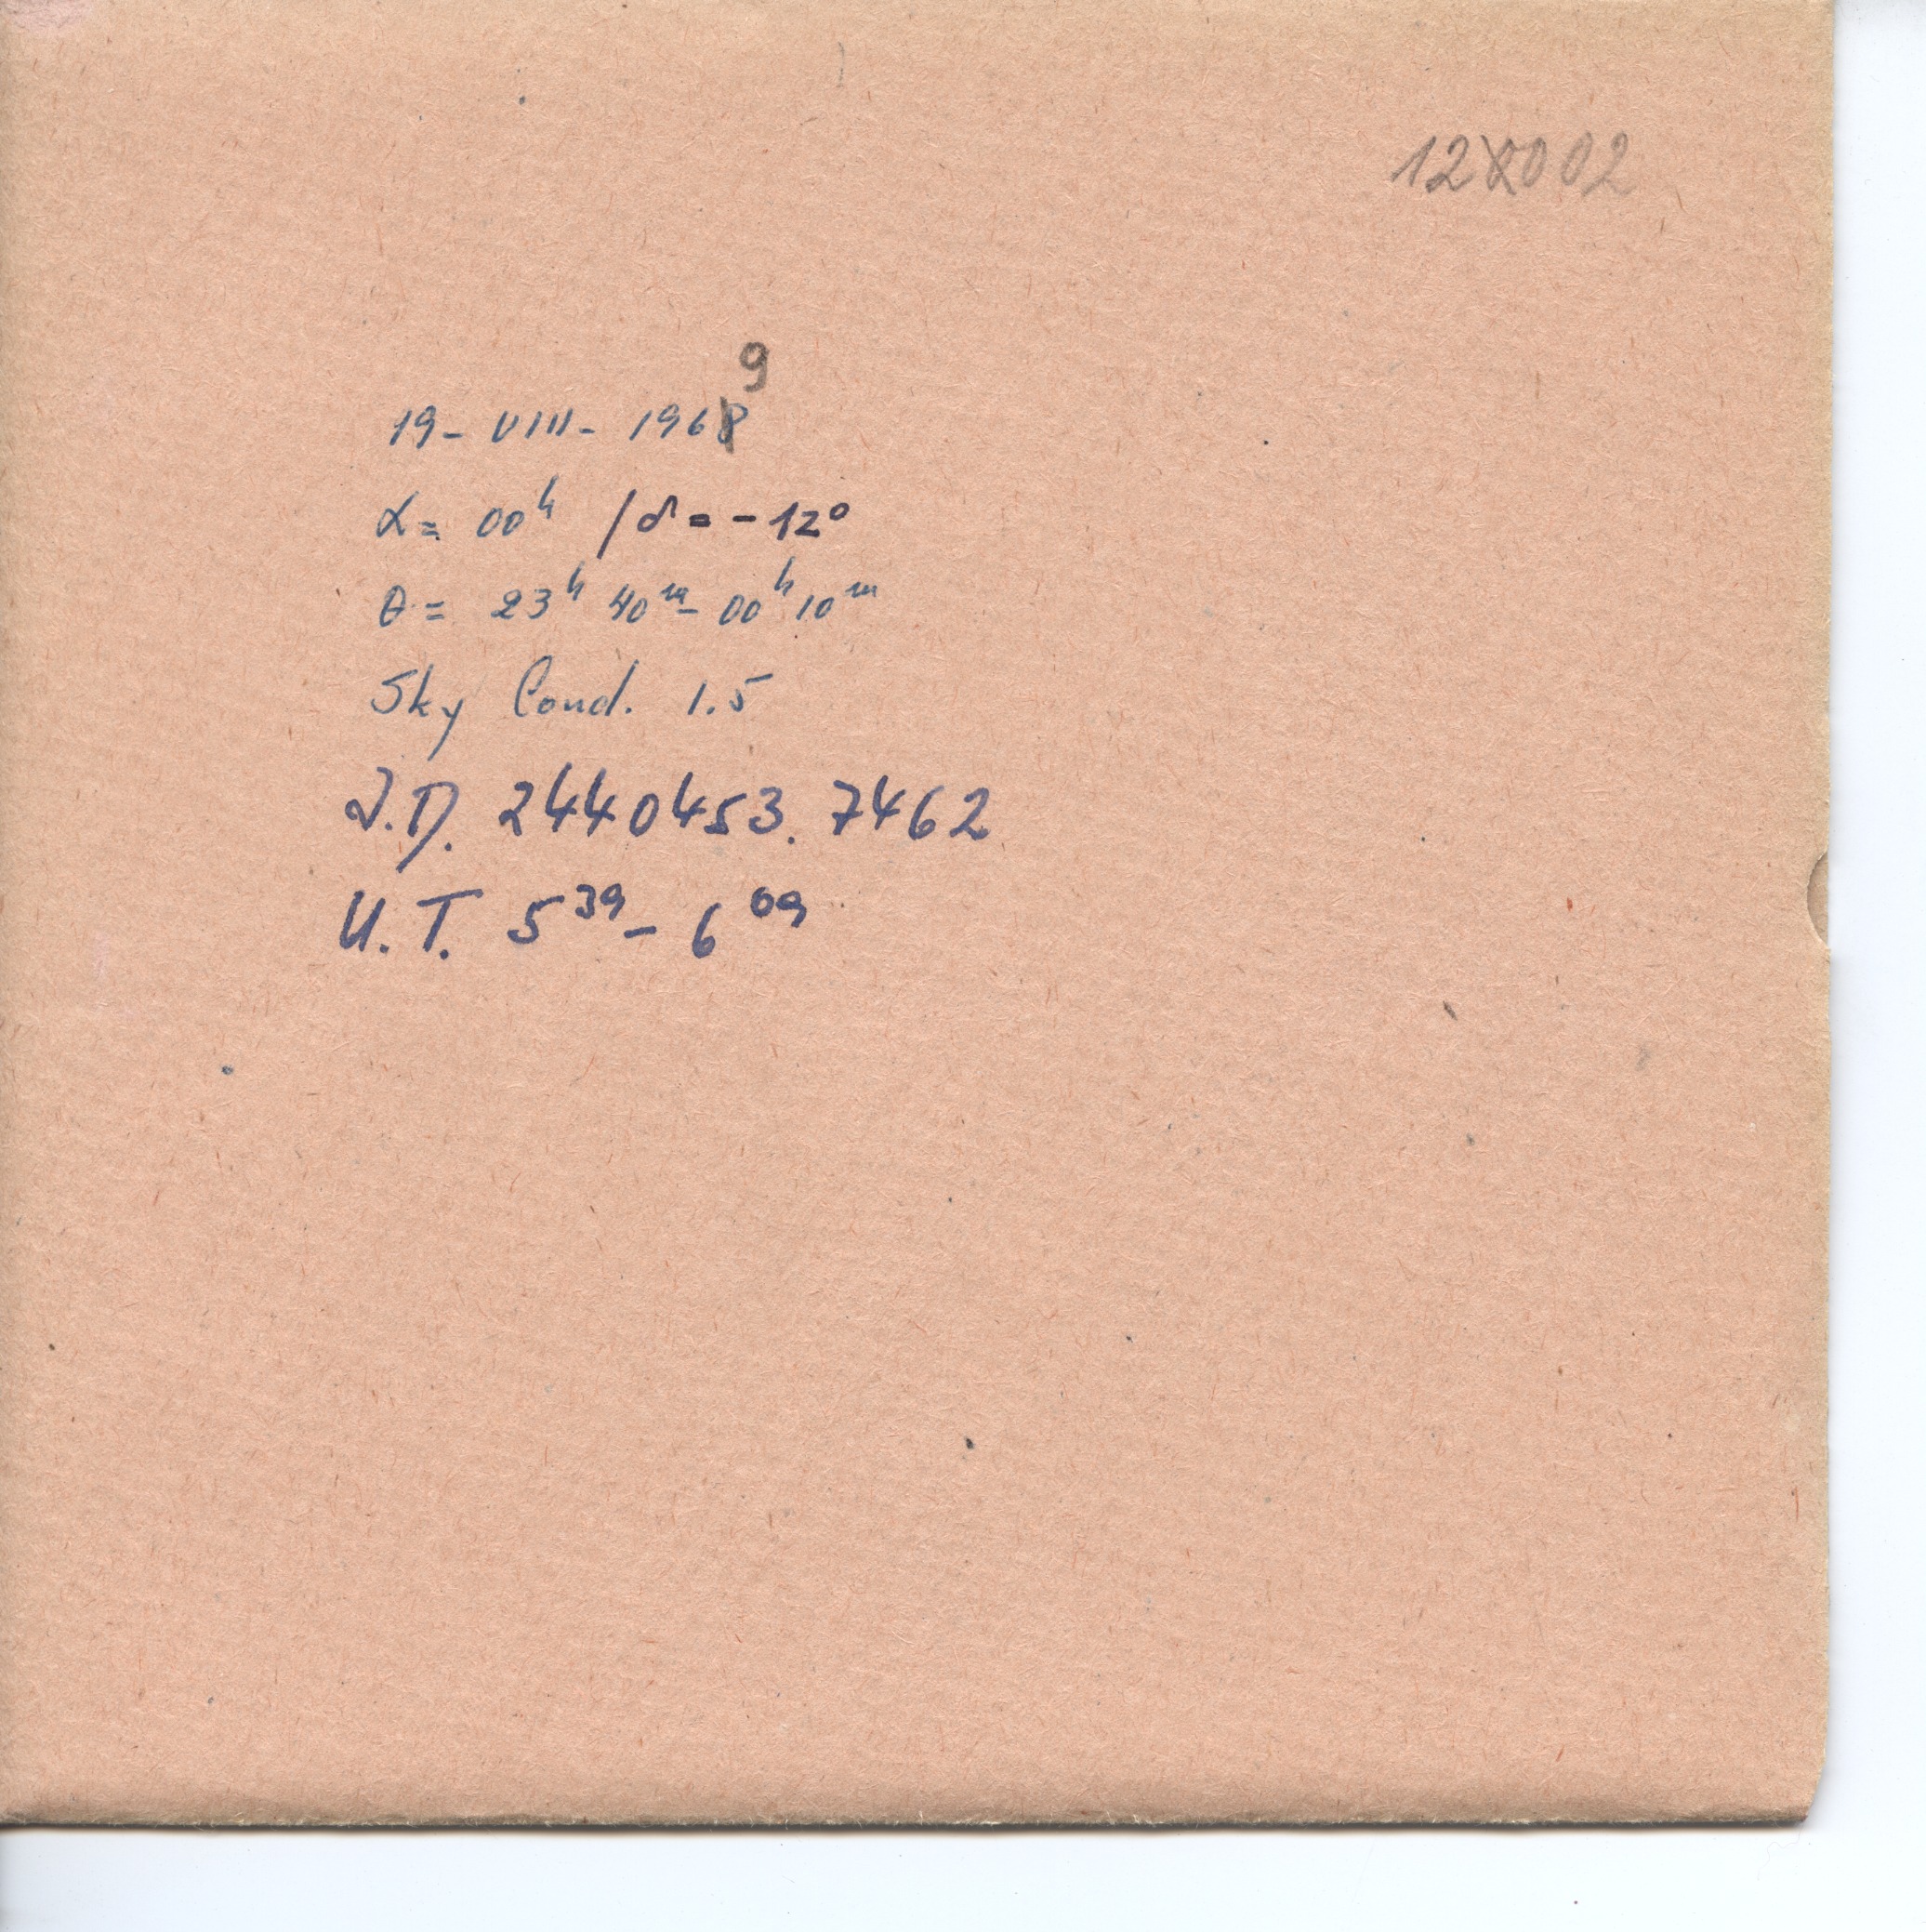 12002
9
19- VIII- 1968
α= 00ʰ /δ= -12°
θ= 23ʰ 40ᵐ- 00ʰ 10ᵐ
Sky Cond. 1.5
J.D. 2440453.7462
U.T. 5³⁹- 6⁰⁹